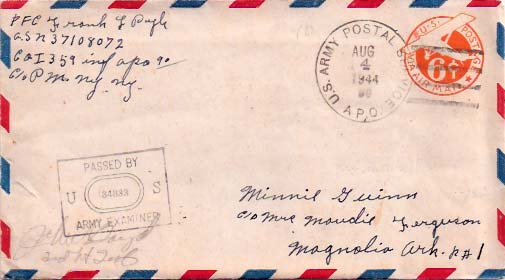 PFC Frank L Pyle
ASN 37108072
Co I 359 inf apo 90
c/o P.M. N.y. ny.
U.S. ARMY POSTAL SERVICE
AUG
4
1944
A.P.O.
U.S. POSTAGE
6¢
VIA AIR MAIL
PASSED BY
U S
34833
ARMY EXAMINER
2nd Lt Inf
Minnie Guinn
c/o Mrs Maudie Ferguson
Magnolia Ark. RA 1